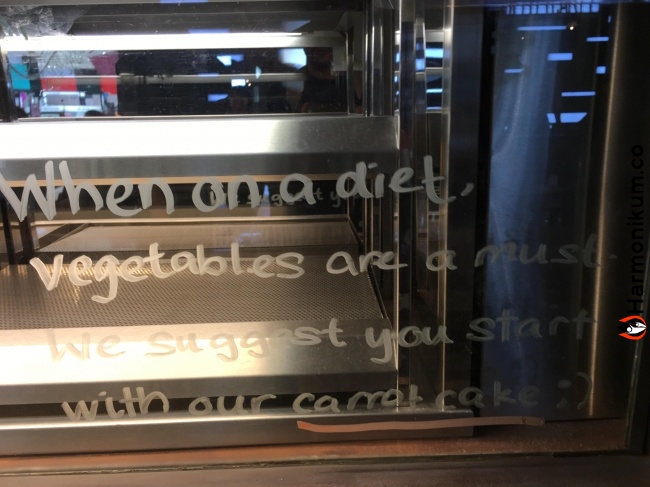 When on a diet,
vegetables are a must.
We suggest you start
with our carrot cake ;)
Harmonikum.co